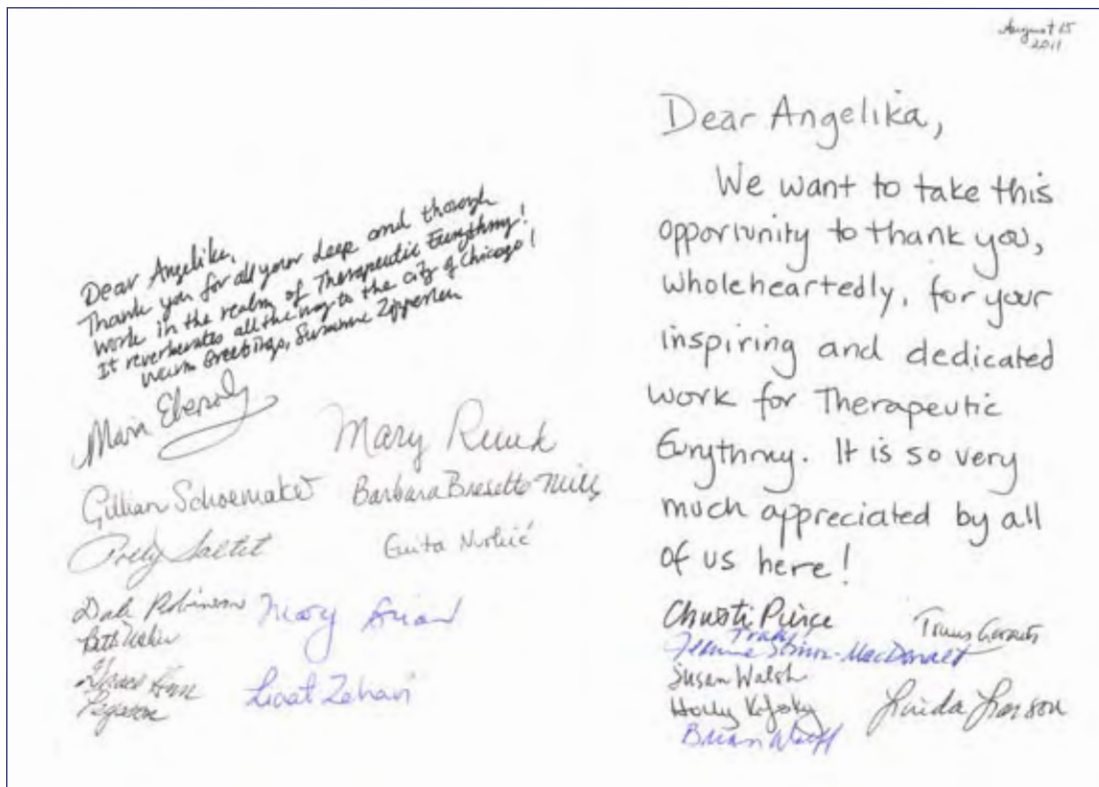 Dear Angelika,
Thank you for all your deep and thorough
work in the realm of Therapeutic Eurythmy!
It reverberates all the way to the city of Chicago!
Warm Greetings, Susanne Zipperlen
Mary Ruud
Gillian Schoemaker Barbara Bresette-Mills
Polly Saltet
Dale Robinson Mary
Grace Ann
Liaat Zehavi
August 15
2011
Dear Angelika,
We want to take this
opportunity to thank you,
wholeheartedly, for your
inspiring and dedicated
work for Therapeutic
Eurythmy. It is so very
much appreciated by all
of us here!
Christi Pierce
Truus Geraets
MacDonald
Susan Walsh
Holly
Linda Larson
Brian